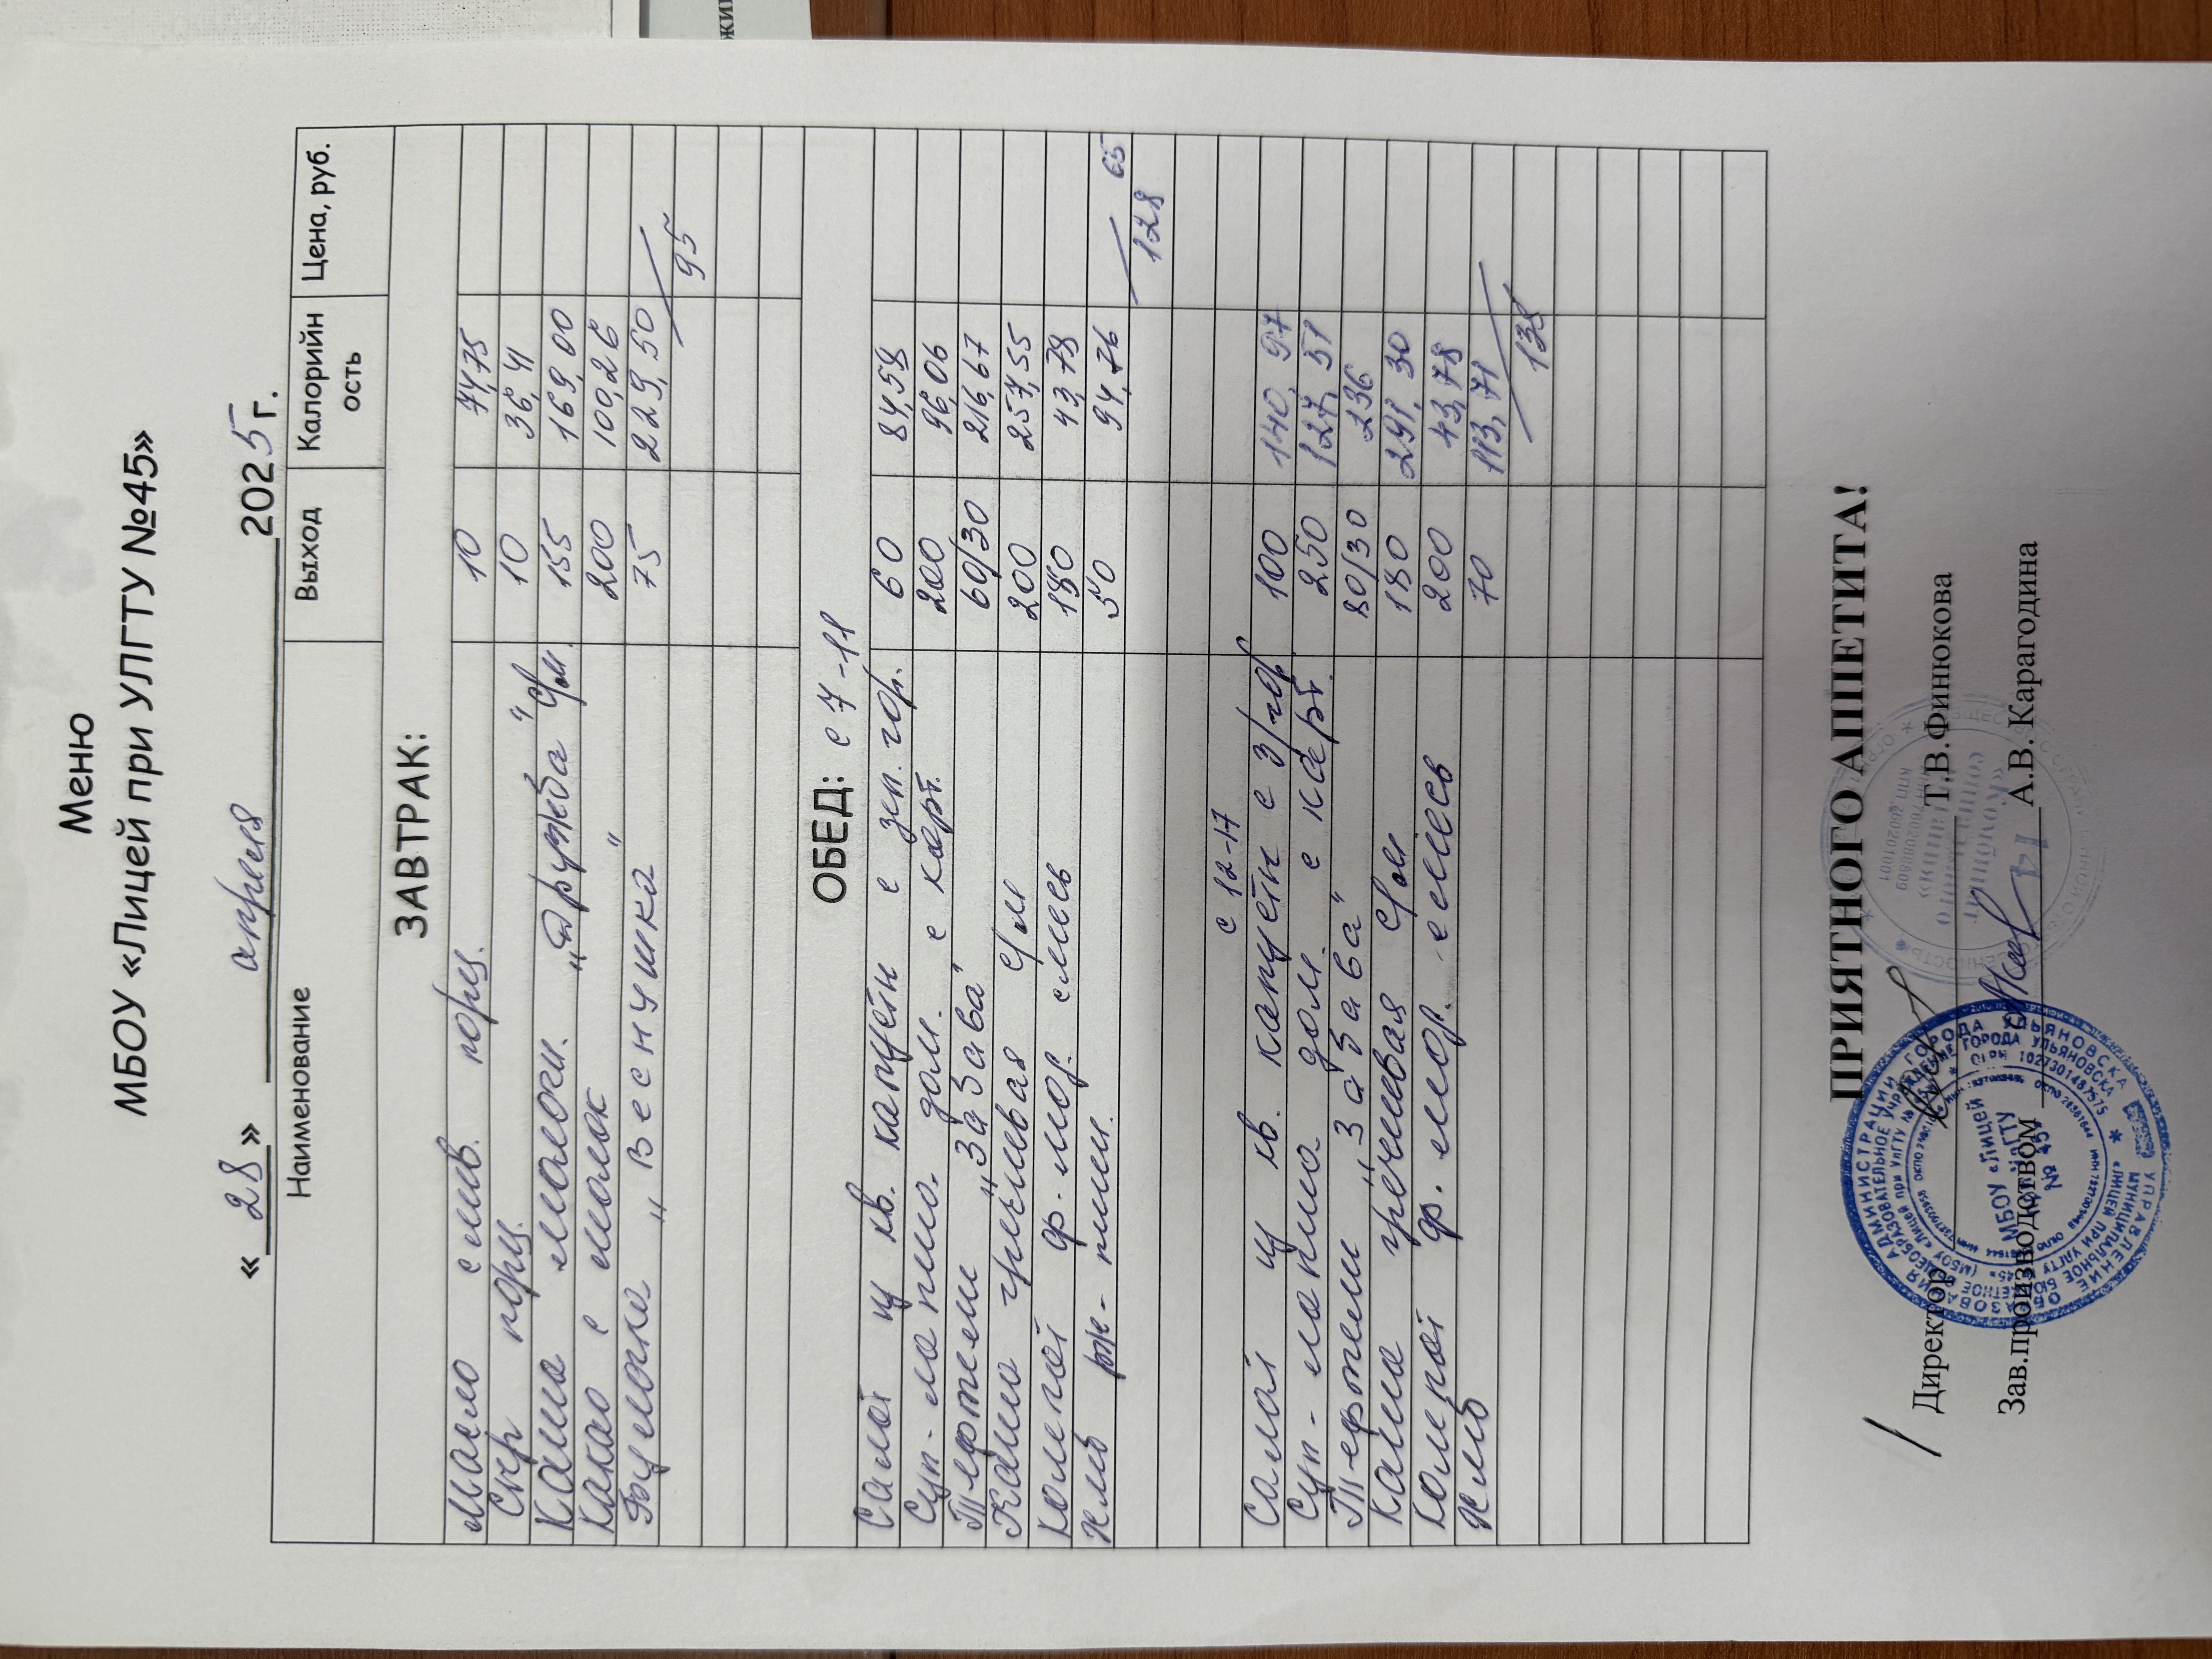 Меню
МБОУ «Лицей при УЛГТУ №45»
« 28 » апреля 2025 г.
Наименование Выход Калорийность Цена, руб.
ЗАВТРАК:
Масло слив. порц. 10 74,75
Сыр порц. 10 36,41
Каша молочн. "Дружба" с/м 155 169,00
Какао с молок 200 100,26
Булочка "Веснушка" 75 229,50
95
ОБЕД: с 7-11
Салат из кв. капусты с зел. гор. 60 84,58
Суп-лапша дом. с карт. 200 96,06
Тефтели "Забава" 60/30 216,67
Каша гречневая с/м 200 257,55
Компот ф.-мор. смесь 180 43,78
Хлеб рж-пшн. 50 94,76
128 65
с 12-17
Салат из кв. капусты с з/гор 100 140,97
Суп-лапша дом. с карт. 250 127,51
Тефтели "Забава" 80/30 236
Каша гречневая с/м 180 291,30
Компот ф. мор. смесь 200 43,78
Хлеб 70 113,71
138
ПРИЯТНОГО АППЕТИТА!
/ Директор Т.В.Финюкова
Зав.производством А.В. Карагодина
МБОУ «Лицей
при УлГТУ
№ 45»